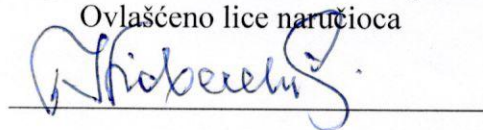 Ovlašćeno lice naručioca